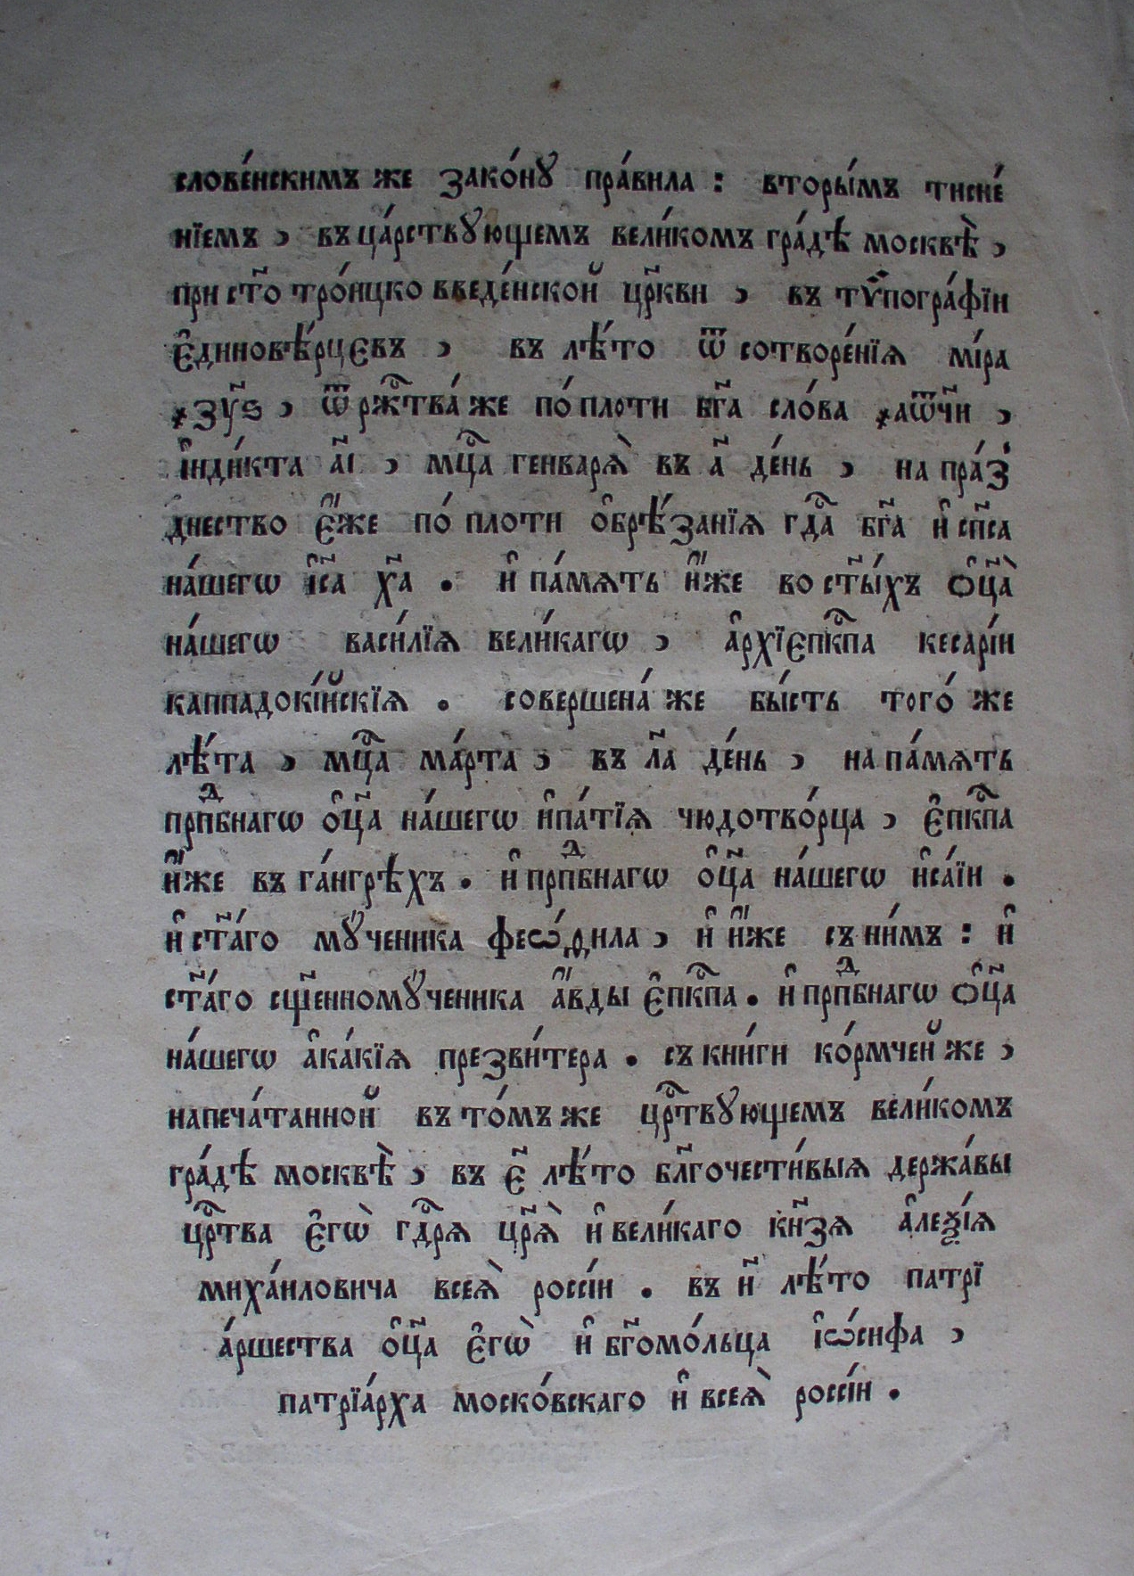 слове́нскимъ же зако́нꙋ пра́вила : вторы́мъ тисне́
нїемъ , въ ца́рствꙋющемъ вели́комъ гра́дѣ москвѣ̀ ,
при ст҃о тро́ицко введе́нской цр҃кви , въ тѷпогра́фїи
є҆диновѣ́рцєвъ , въ лѣ́то ѿ сотворе́нїѧ мі́ра
҂зу҃ѕ , ѿ рж҇тва́ же по́ плоти бг҃а сло́ва ҂аѿч҃и ,
і҆нди́кта а҃і , мц҇а генварѧ̀ въ а҃ де́нь , на пра́з
днество є҆́же по́ плоти ѻ҆брѣ́занїѧ гд҇а бг҃а и҆ сп҃са
на́шегѡ і҆с҃а хр҃а . и҆ па́мѧть и҆́же во ст҃ы́хъ ѻ҆ц҃а̀
на́шегѡ васи́лїѧ вели́кагѡ , а҆рхїєпк҇па кесарі́и
каппадокі́йскїѧ . совершена́ же бы́сть того́ же
лѣ́та , мц҇а ма́рта , въ л҃а де́нь , на па́мѧть
прпⷣбнагѡ ѻ҆ц҃а на́шегѡ и҆па́тїѧ чюдотво́рца , є҆пк҇па
и҆́же въ га́нгрѣхъ . и҆ прпⷣбнагѡ ѻ҆ц҃а на́шегѡ и҆са́їи .
и҆ ст҃а́го мꙋ́ченика феѡ́дꙋла , и҆ и҆́же съ ни́мъ : и҆
ст҃а́го сщ҃енномꙋ́ченика а҆́вды є҆пк҇па . и҆ прпⷣбнагѡ ѻ҆ц҃а
на́шегѡ а҆ка́кїѧ презви́тера . съ кни́ги ко́рмчей же ,
напеча́танной въ то́мъ же цр҇твꙋющемъ вели́комъ
гра́дѣ москвѣ̀ , въ є҃ лѣ́то бл҃гочести́выѧ держа́вы
цр҇тва є҆гѡ̀ гд҇рѧ цр҃ѧ̀ и҆ вели́каго кн҃зѧ а҆леѯі́ѧ
миха́иловича всеѧ̀ россі́и . въ и҃ лѣ́то патрї
а́ршества ѻ҆ц҃а є҆гѡ̀ и҆ бг҃омо́льца і҆ѡ́сифа ,
патрїа́рха моско́вскаго и҆ всеѧ̀ россі́и .